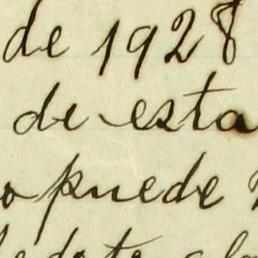 de 1928
de esta
puede